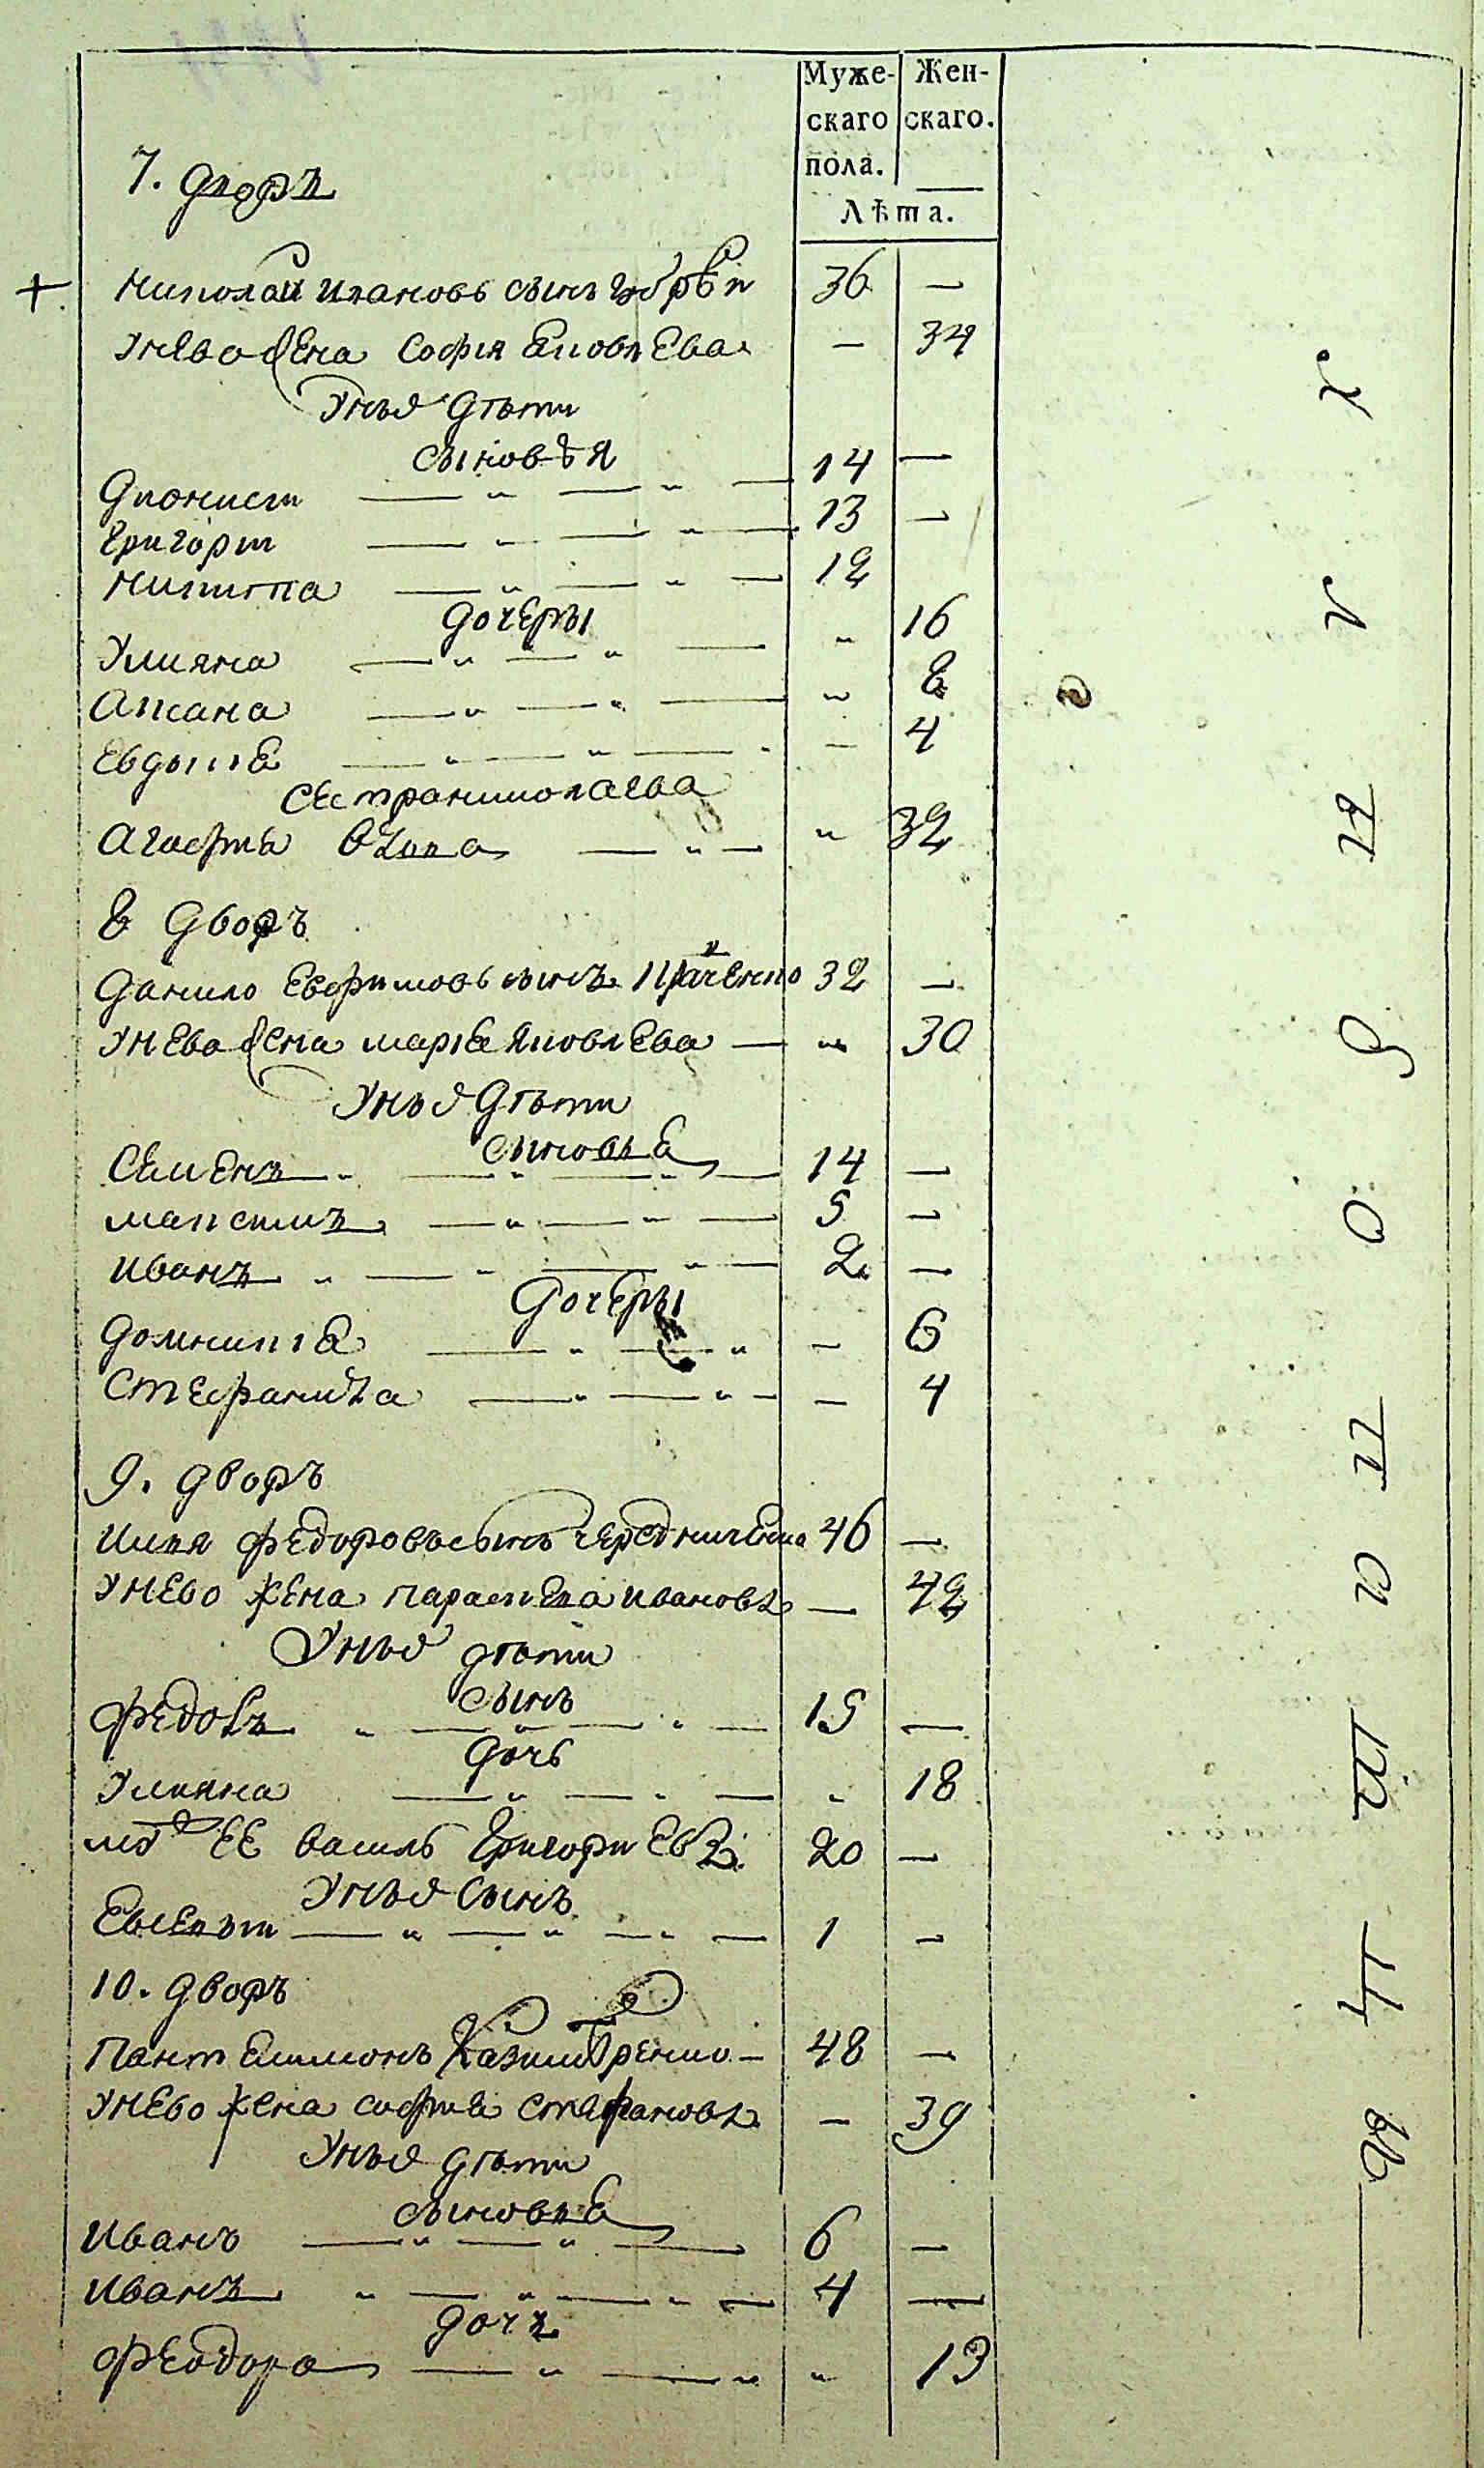 Муже- Жен-
скаго скаго.
пола.
Лѣта.
7. дворъ
Николай Ивановъ сынъ 36 —
Унево жена София Яковлева — 34
Унъхъ дѣти
сыновъя
Дионисій 14 —
Григорій 13 —
Никита 12
дочеры
Улияна 16
Аксана 8
Евдокія — 4
Сестра николаева
Агафия вдова 32
8 Дворъ
Данило Ефимовъ сынъ 32 —
Унева жена мария Яковлева — 30
Унъхъ Дѣти
сыновья
Семенъ 14 —
максимъ 5 —
Иванъ 2 —
Дочеры
Домникія — 6
Стефанида — 4
9. дворъ
Илия Федоровъ сынъ Чередниченко 46 —
Унево жена параскева иванова — 42
Унъхъ дѣти
сынъ
Федоръ 15 —
дочь
Улияна 18
ее василь Григориевъ 20 —
Унъхъ сынъ
1 —
10. дворъ
Пантелимонъ 48 —
Унево жена софия стефанова — 39
Унъхъ дѣти
сыновья
Иванъ 6 —
Иванъ 4 —
дочъ
Феодора 13